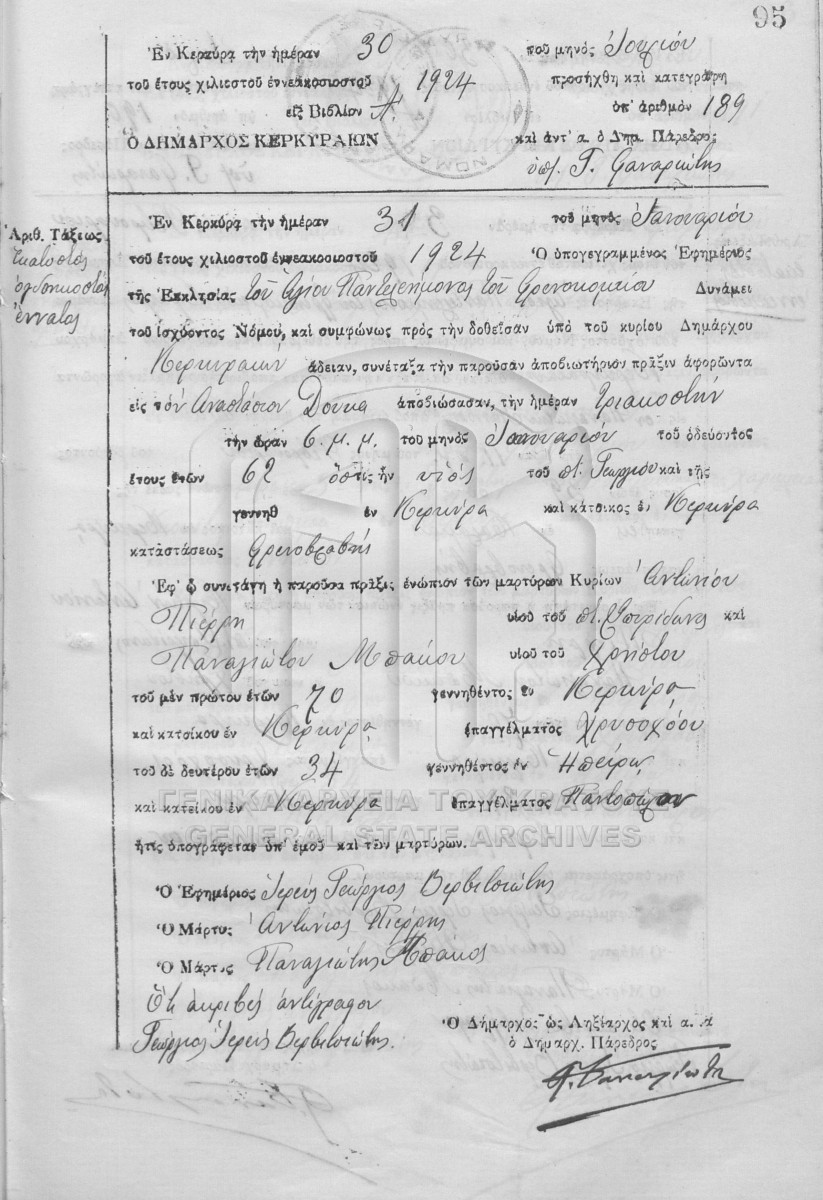 95
Ἐν Κερκύρᾳ τὴν ἡμέραν 30 τοῦ μηνὸς Ἰουλίου
τοῦ ἔτους χιλιοστοῦ ἐννεακοσιοστοῦ 1924 προσήχθη καὶ κατεγράφη
εἰς Βιβλίον Α΄. ὑπ' ἀριθμὸν 189
Ὁ ΔΗΜΑΡΧΟΣ ΚΕΡΚΥΡΑΙΩΝ καὶ ἀντ' α. ὁ Δημ. Πάρεδρος
ὑπ. Γ.
Ἀριθ. Τάξεως
Ἑκατοστὸς
ὀγδοηκοστὸς
ἔννατος
Ἐν Κερκύρᾳ τὴν ἡμέραν 31 τοῦ μηνὸς Ἰανουαρίου
τοῦ ἔτους χιλιοστοῦ ἐννεακοσιοστοῦ 1924 Ὁ ὑπογεγραμμένος Ἐφημέριος
τῆς Ἐκκλησίας τοῦ Ἁγίου Παντελεήμονος τοῦ Φρενοκομείου Δυνάμει
τοῦ ἰσχύοντος Νόμου, καὶ συμφώνως πρὸς τὴν δοθεῖσαν ὑπὸ τοῦ κυρίου Δημάρχου
Κερκυραίων ἄδειαν, συνέταξα τὴν παροῦσαν ἀποβιωτήριον πρᾶξιν ἀφορῶντα
εἰς τὸν Ἀναστάσιον Δούκα ἀποβιώσασαν, τὴν ἡμέραν τριακοστὴν
τὴν ὥραν 6 μ.μ. τοῦ μηνὸς Ἰανουαρίου τοῦ ὁδεύοντος
ἔτους ἐτῶν 62 ὅστις ἦν υἱὸς τοῦ π. Γεωργίου καὶ τῆς
γεννηθ ἐν Κερκύρᾳ καὶ κάτοικος ἐν Κερκύρᾳ
καταστάσεως φρενοβλαβὴς
Ἐφ' ᾧ συνετάγη ἡ παροῦσα πρᾶξις ἐνώπιον τῶν μαρτύρων Κυρίων Ἀντωνίου
Πιέρρη υἱοῦ τοῦ π. Σπυρίδωνος καὶ
Παναγιώτου Μπάκου υἱοῦ τοῦ Χρήστου
τοῦ μὲν πρώτου ἐτῶν 70 γεννηθέντος ἐν Κερκύρᾳ
καὶ κατοίκου ἐν Κερκύρᾳ ἐπαγγέλματος χρυσοχόου
τοῦ δὲ δευτέρου ἐτῶν 34 γεννηθέντος ἐν Ἠπείρῳ
καὶ κατοίκου ἐν Κερκύρᾳ ἐπαγγέλματος Παντοπώλου
ΓΕΝΙΚΑ ΑΡΧΕΙΑ ΤΟΥ ΚΡΑΤΟΥΣ
GENERAL STATE ARCHIVES
ἥτις ὑπογράφεται ὑπ' ἐμοῦ καὶ τῶν μαρτύρων.
Ὁ Ἐφημέριος Ἱερεὺς Γεώργιος Βερβιτσιώτης
Ὁ Μάρτυς Ἀντώνιος Πιέρρης
Ὁ Μάρτυς Παναγιώτης Μπάκος
Ὅτι ἀκριβὲς ἀντίγραφον
Γεώργιος Ἱερεὺς Βερβιτσιώτης.
Ὁ Δήμαρχος ὡς Ληξίαρχος καὶ α. α
ὁ Δημαρχ. Πάρεδρος